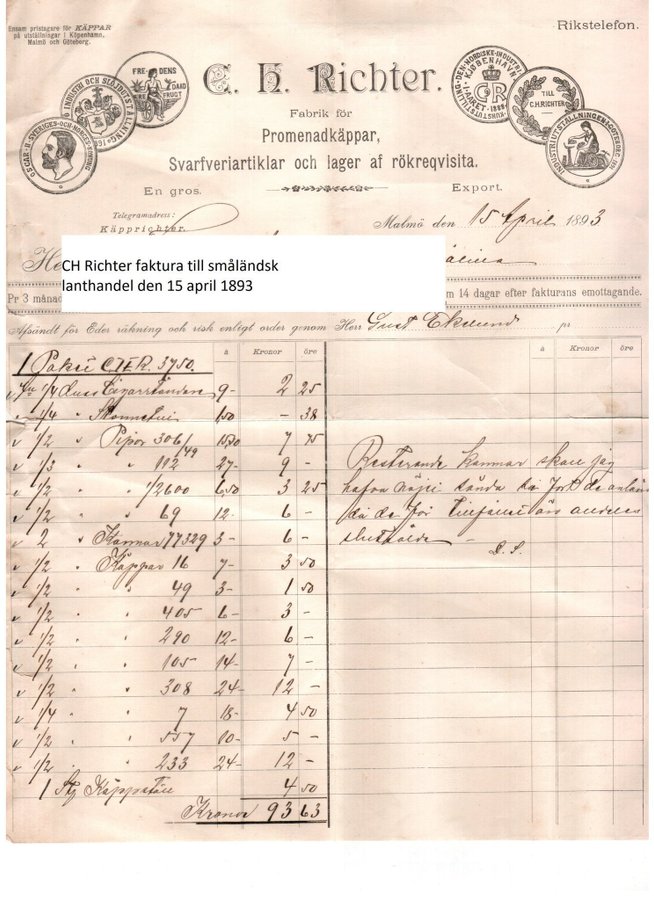 Ensam pristagare för KÄPPAR
på utställningar i Köpenhamn,
Malmö och Göteborg.
Rikstelefon.
C. H. Richter.
Fabrik för
Promenadkäppar,
Svarfveriartiklar och lager af rökreqvisita.
En gros.
Export.
OSCAR·II·SVERIGES·OCH·NORGES·KONUNG
INDUSTRI OCH SLÖJDUTSTÄLLNING
FREDENS
FRUGT
KJØBENHAVN
I·AARET·1888
CR
TILL
C.H.RICHTER
INDUSTRIUTSTÄLLNINGEN
Telegramadress:
Käpprichter.
Malmö den 15 April 1893
CH Richter faktura till småländsk
lanthandel den 15 april 1893
Pr 3 månad
om 14 dagar efter fakturans emottagande.
Afsändt för Eder räkning och risk enligt order genom Herr Gust Eklund pr
à Kronor öre
1 C.H.R. 3750.
1/4 Duss 9- 2 25
1/4 " 150 - 38
1/2 " Pipor 306/149 1550 7 75
1/3 " 112 27- 9 -
1/2 " 1/2600 650 3 25
1/2 " 69 12- 6 -
2 " Kannar 77329 3- 6 -
1/2 " Käppar 16 7- 3 50
1/2 " " 49 3- 1 50
1/2 " " 405 6- 3 -
1/2 " " 290 12- 6 -
1/2 " " 105 14- 7 -
1/2 " " 308 24- 12 -
1/4 " " 7 18- 4 50
1/2 " " 557 10- 5 -
1/2 " " 233 24- 12 -
1 Stg Käppställ 4 50
Kronor 93 63
Resterande kannar skall jag